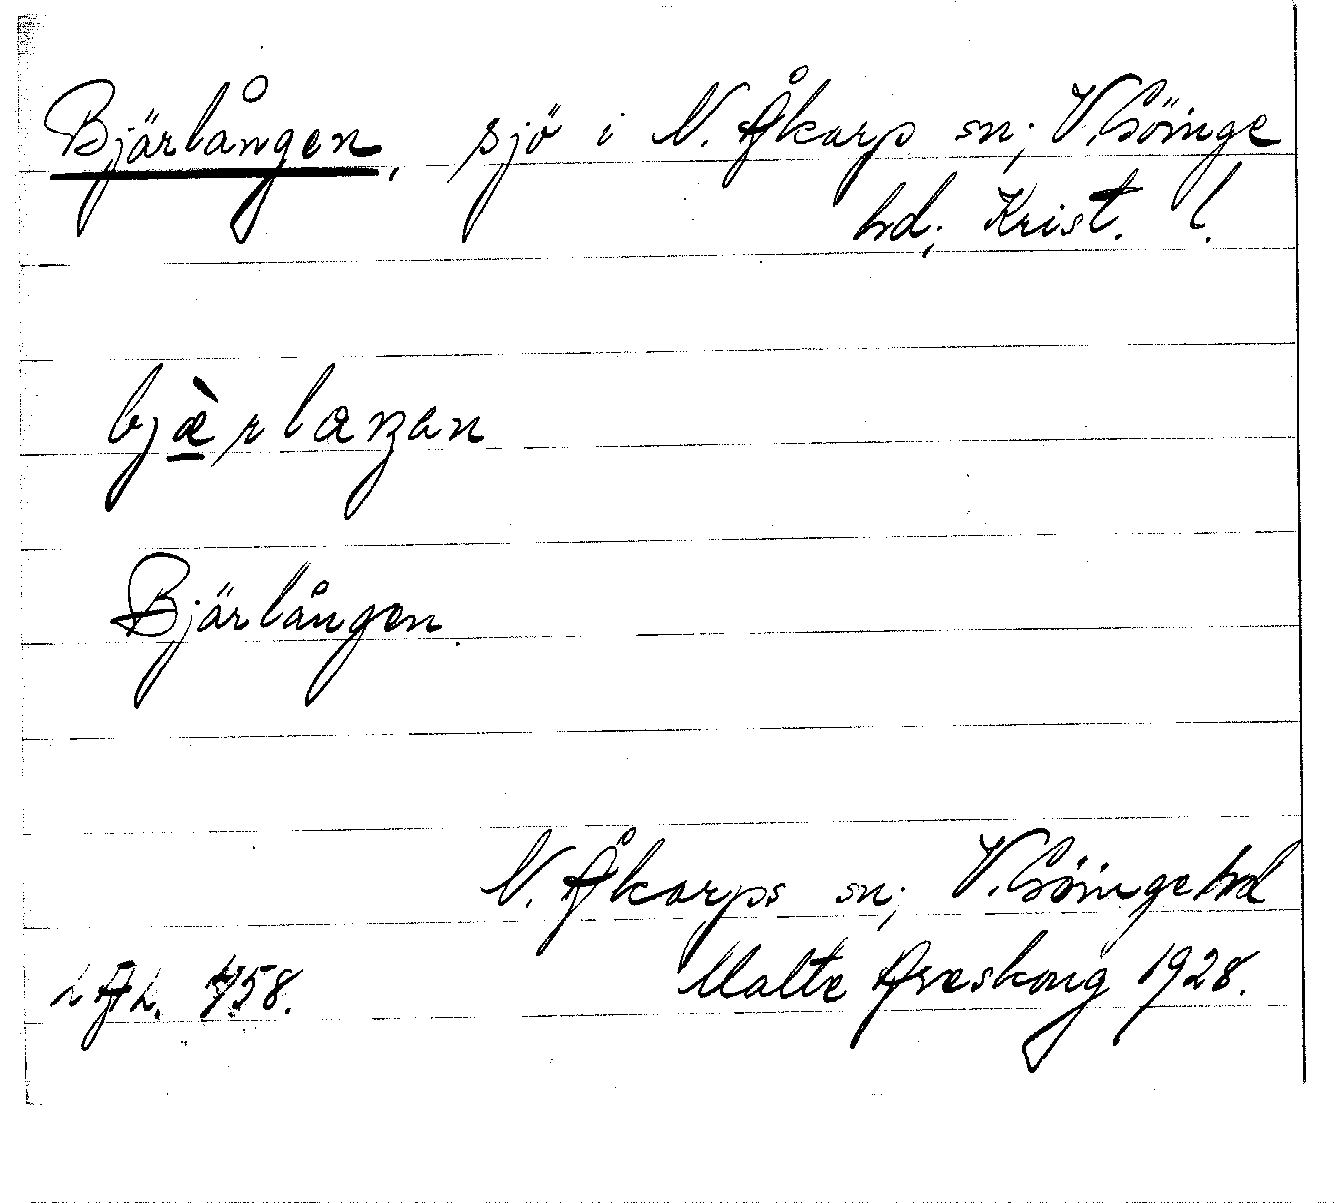 Bjärlången, sjö i N. Åkarp sn; V. Göinge
hd; Krist. l.
bjæ̀rlaŋan
Bjärlången.
N. Åkarps sn; V. Göinge hd
Malte Areskoug 1928.
458.